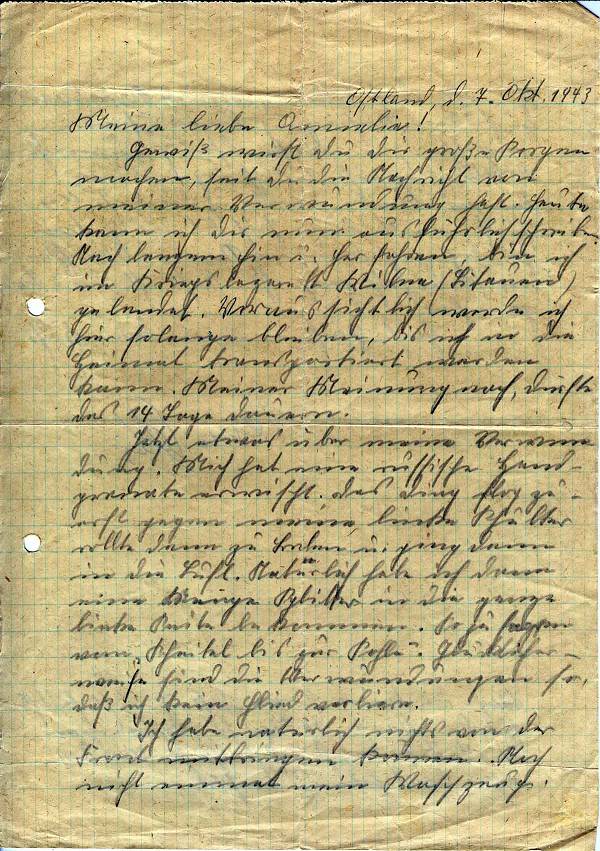 Ostland, d. 7. Okt. 1943
Meine liebe Annelie!
Gewiß wirst du dir große Sorgen
machen, seit du die Nachricht von
meiner Verwundung hast. Heute
kann ich dir nun ausführl. schreiben.
Nach langem hin u. her fahren, bin ich
im Kriegslazarett Wilna (Litauen)
gelandet. Voraussichtlich werde ich
hier solange bleiben, bis ich in die
Heimat transportiert werden
kann. Meiner Meinung nach, dürfte
das 14 Tage dauern.
Jetzt etwas über meine Verwun
dung. Mich hat eine russische Hand-
granate erwischt. Das Ding flog zu-
erst gegen meine linke Schulter
rollte dann zu Boden u. ging dann
in die Luft. Natürlich habe ich dann
eine Menge Splitter in die ganze
linke Seite bekommen. So zu sagen
vom Scheitel bis zur Sohle. Glücklicher-
weise sind die Verwundungen so,
daß ich kein Glied verliere.
Ich habe natürlich nichts von der
Front mitbringen können. Noch
nicht einmal mein Waschzeug.